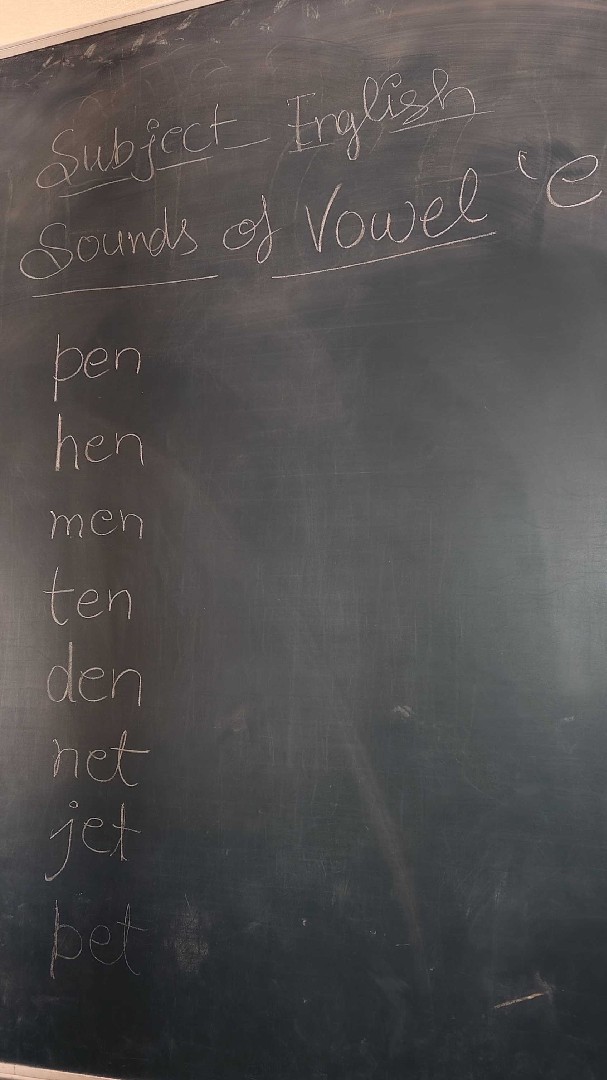 Subject - English
Sounds of Vowel 'e
pen
hen
men
ten
den
net
jet
pet